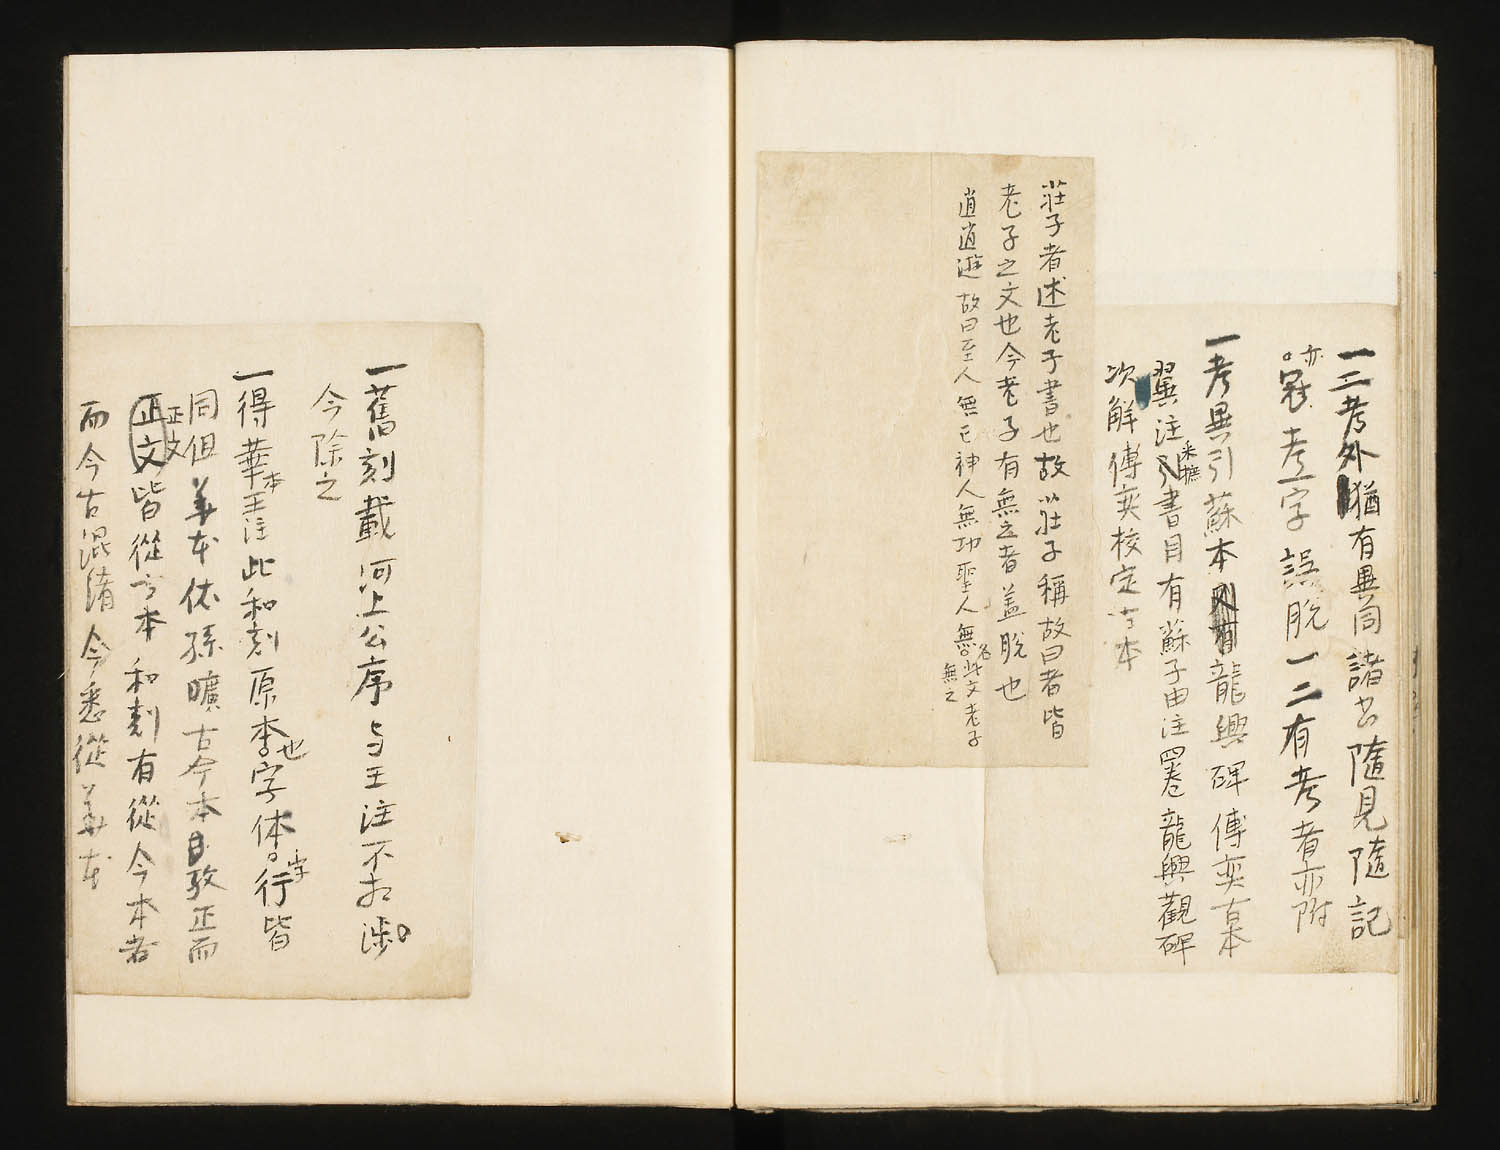 一二考外猶有異同諸書隨見隨記
亦冠考字誤脫一二有考者亦附
一考異引蘇本龍興碑傅奕古本
翼注采摭書目有蘇子由注四卷龍興觀碑
次解傅奕校定古本
莊子者述老子書也故莊子稱故曰者皆
老子之文也今老子有無之者蓋脫也
逍遙遊故曰至人無己神人無功聖人無名此文老子
無之
一舊刻載河上公序与王注不相涉
今除之
一得華本王注此和刻原本也字体字行皆
同但華本依孫曠古今本攷正而
正文
正文皆從古本和刻有從今本者
而今古混淆今悉從華本